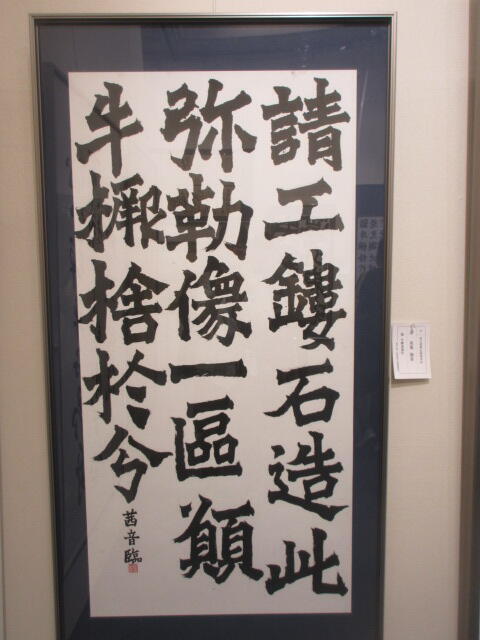 請工鏤石造此
弥勒像一區願
牛橛捨於分
茜音臨